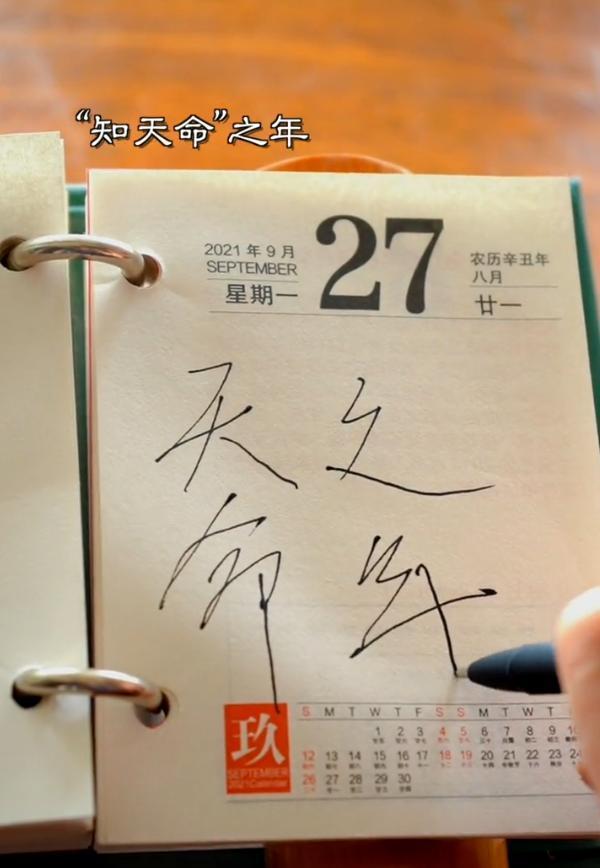 “知天命”之年
2021年9月
SEPTEMBER
星期一
27
农历辛丑年
八月
廿一
天命
之年
玖
SEPTEMBER
2021Calendar
S M T W T F S S M T W T
1 2 3 4 5 6 7 8 9
12 13 14 15 16 17 18 19 20 21 22 23 24
26 27 28 29 30